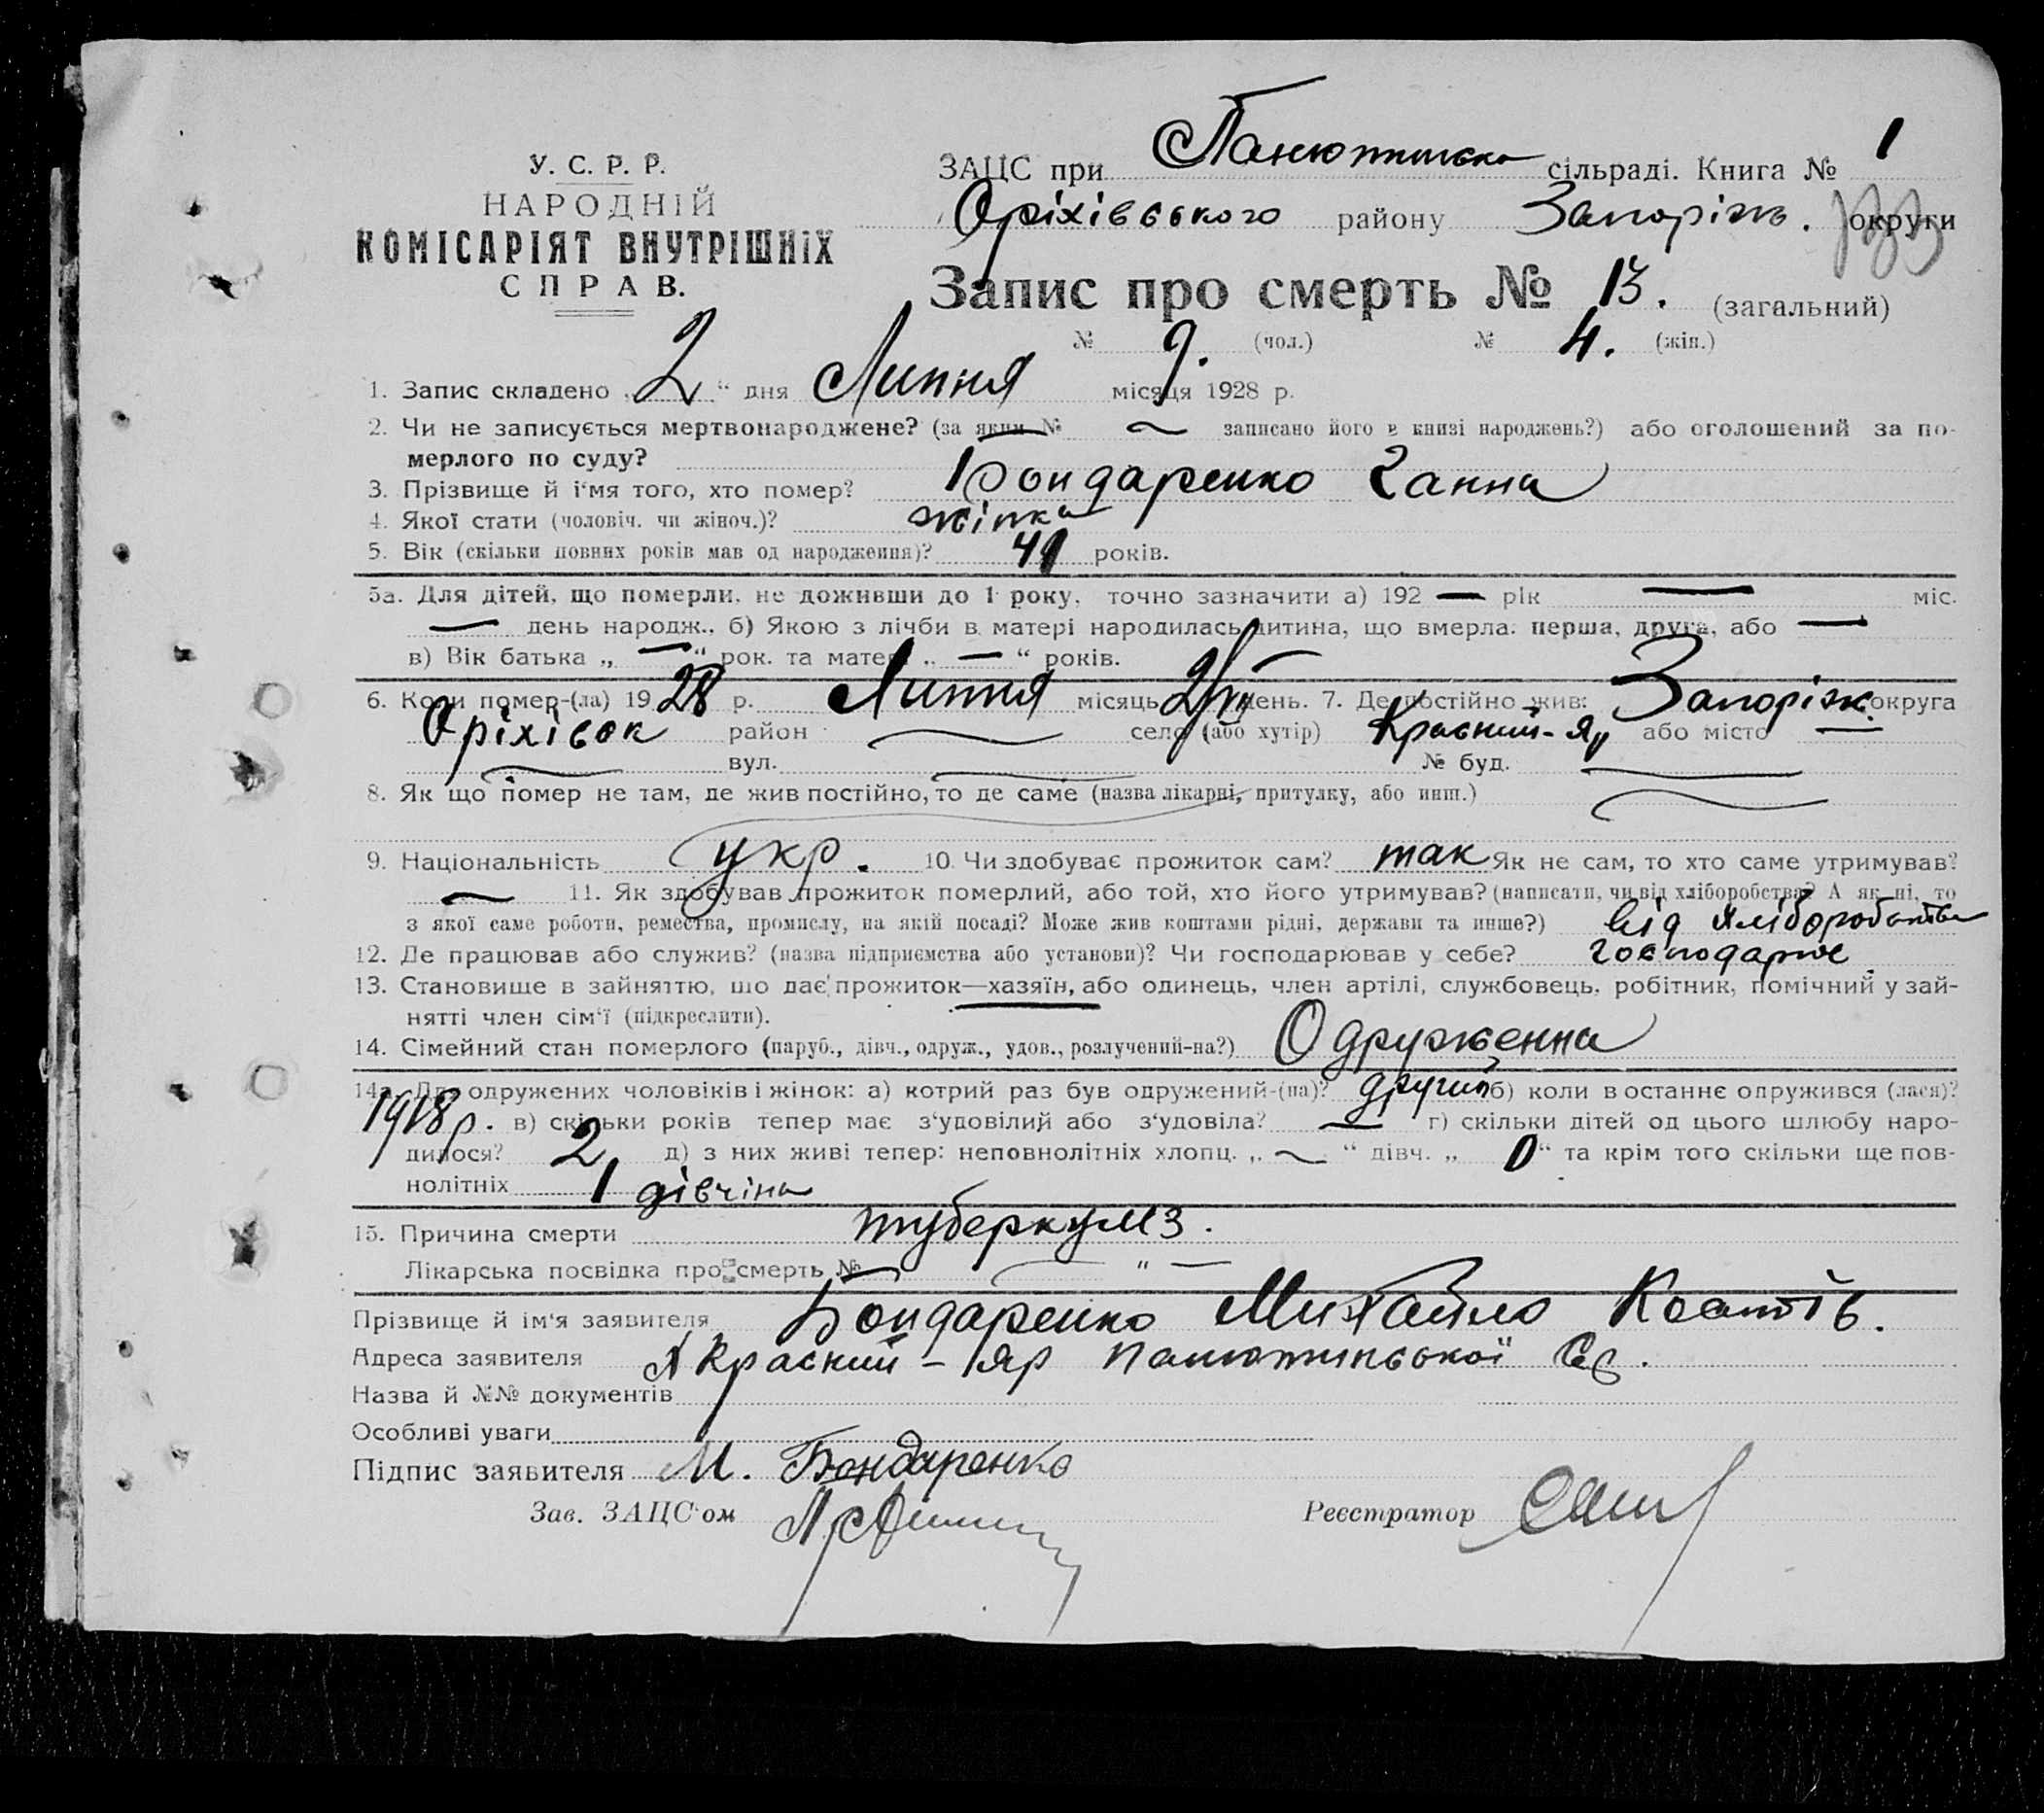 У. С. Р. Р.
НАРОДНІЙ
КОМІСАРІЯТ ВНУТРІШНІХ
СПРАВ.
ЗАЦС при Панютинська сільраді. Книга № 1
Оріхівського району Запоріж. округи
Запис про смерть № 13. (загальний)
№ 9. (чол.) № 4. (жін.)
1. Запис складено „2“ дня Липня місяця 1928 р.
2. Чи не записується мертвонароджене? (за яким № ~ записано його в книзі народжень?) або оголошений за по-
мерлого по суду?
3. Прізвище й ім'я того, хто помер? Бондаренко Ганна
4. Якої статі (чоловіч. чи жіноч.)? жінка
5. Вік (скільки повних років мав од народження)? 41 років.
5а. Для дітей, що померли, не доживши до 1 року, точно зазначити а) 192 — рік — міс.
— день народж., б) Якою з лічби в матері народилась дитина, що вмерла: перша, друга, або —
в) Вік батька „ — “ рок. та матері „ — “ років.
6. Коли помер-(ла) 1928 р. Липня місяць день. 7. Де постійно жив: Запоріж. округа
Оріхівськ район село (або хутір) Красний-Яр або місто —
вул. № буд.
8. Як що помер не там, де жив постійно, то де саме (назва лікарні, притулку, або инш.)
9. Національність укр. 10. Чи здобуває прожиток сам? так Як не сам, то хто саме утримував?
— 11. Як здобував прожиток померлий, або той, хто його утримував? (написати, чи від хліборобства? А як ні, то
з якої саме роботи, ремества, промислу, на якій посаді? Може жив коштами рідні, держави та инше?) від хліборобства
12. Де працював або служив? (назва підприємства або установи)? Чи господарював у себе? господарює.
13. Становище в зайняттю, що дає прожиток—хазяїн, або одинець, член артілі, службовець, робітник, помічний у зай-
нятті член сім'ї (підкреслити).
14. Сімейний стан померлого (паруб., дівч., одруж., удов., розлучений-на?) Одруженна
14а. Для одружених чоловіків і жінок: а) котрий раз був одружений-(на)? другий б) коли востаннє одружився (лася)?
1918 р. в) скільки років тепер має з'удовілий або з'удовіла? — г) скільки дітей од цього шлюбу наро-
дилося? 2, д) з них живі тепер: неповнолітніх хлопц. „ ~ “ дівч. „ 0 “ та крім того скільки ще пов-
нолітніх 1 дівчіна
15. Причина смерти туберкульз.
Лікарська посвідка про смерть № — " —
Прізвище й ім'я заявителя Бондаренко Михайло Костів.
Адреса заявителя х Красний-Яр Панютинської С/р.
Назва й №№ документів
Особливі уваги
Підпис заявителя М. Бондаренко
Зав. ЗАЦС'ом Реєстратор